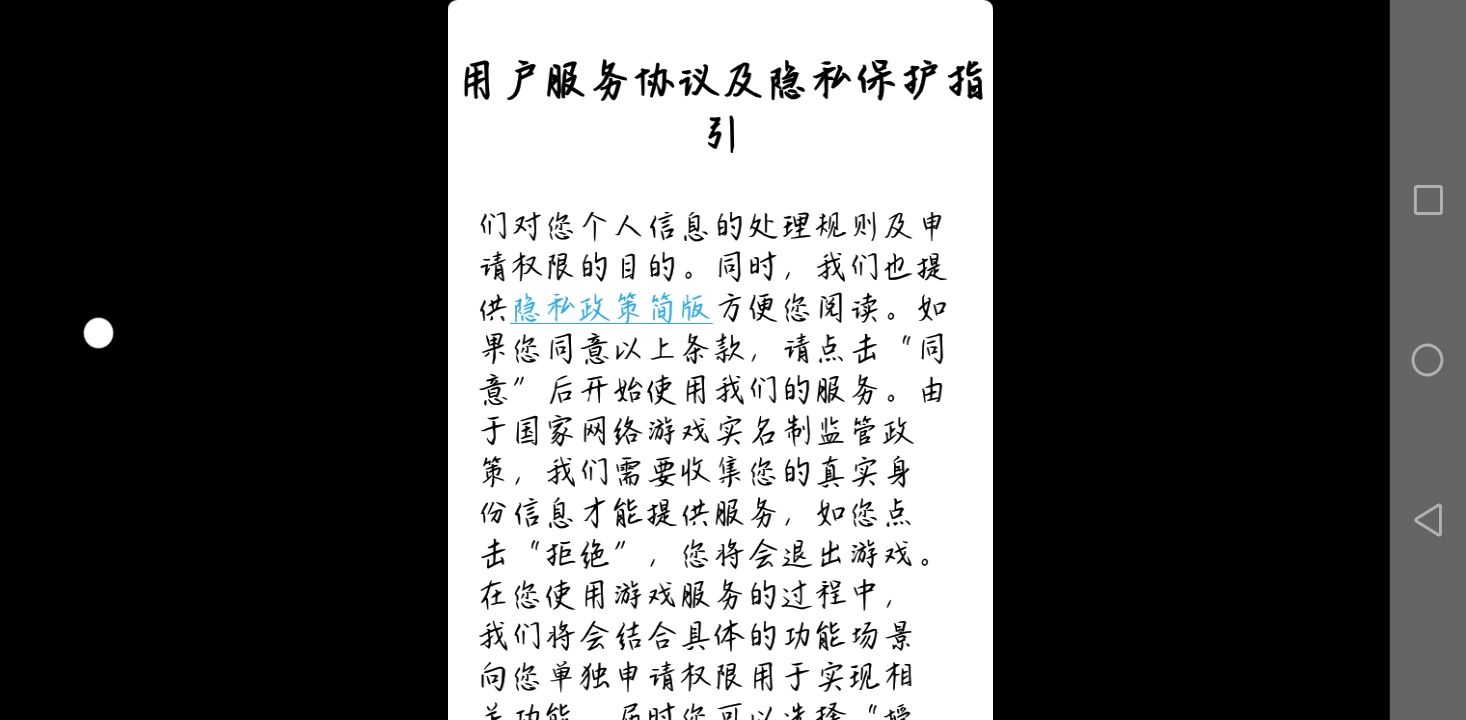 用户服务协议及隐私保护指
引
们对您个人信息的处理规则及申
请权限的目的。同时，我们也提
供隐私政策简版方便您阅读。如
果您同意以上条款，请点击“同
意”后开始使用我们的服务。由
于国家网络游戏实名制监管政
策，我们需要收集您的真实身
份信息才能提供服务，如您点
击“拒绝”，您将会退出游戏。
在您使用游戏服务的过程中，
我们将会结合具体的功能场景
向您单独申请权限用于实现相
关功能，届时您可以选择“授